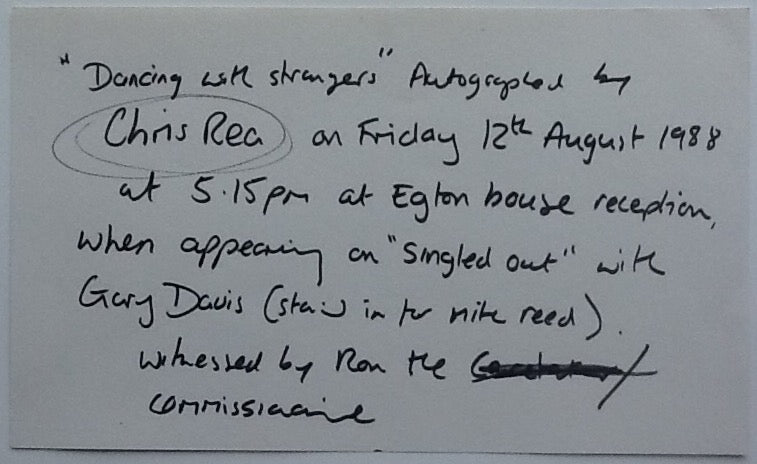 "Dancing with strangers" Autographed by
Chris Rea on Friday 12th August 1988
at 5.15pm at Egton house reception,
when appearing on "Singled out" with
Gary Davis (stand in for mike reed).
witnessed by Ron the
commissionaire